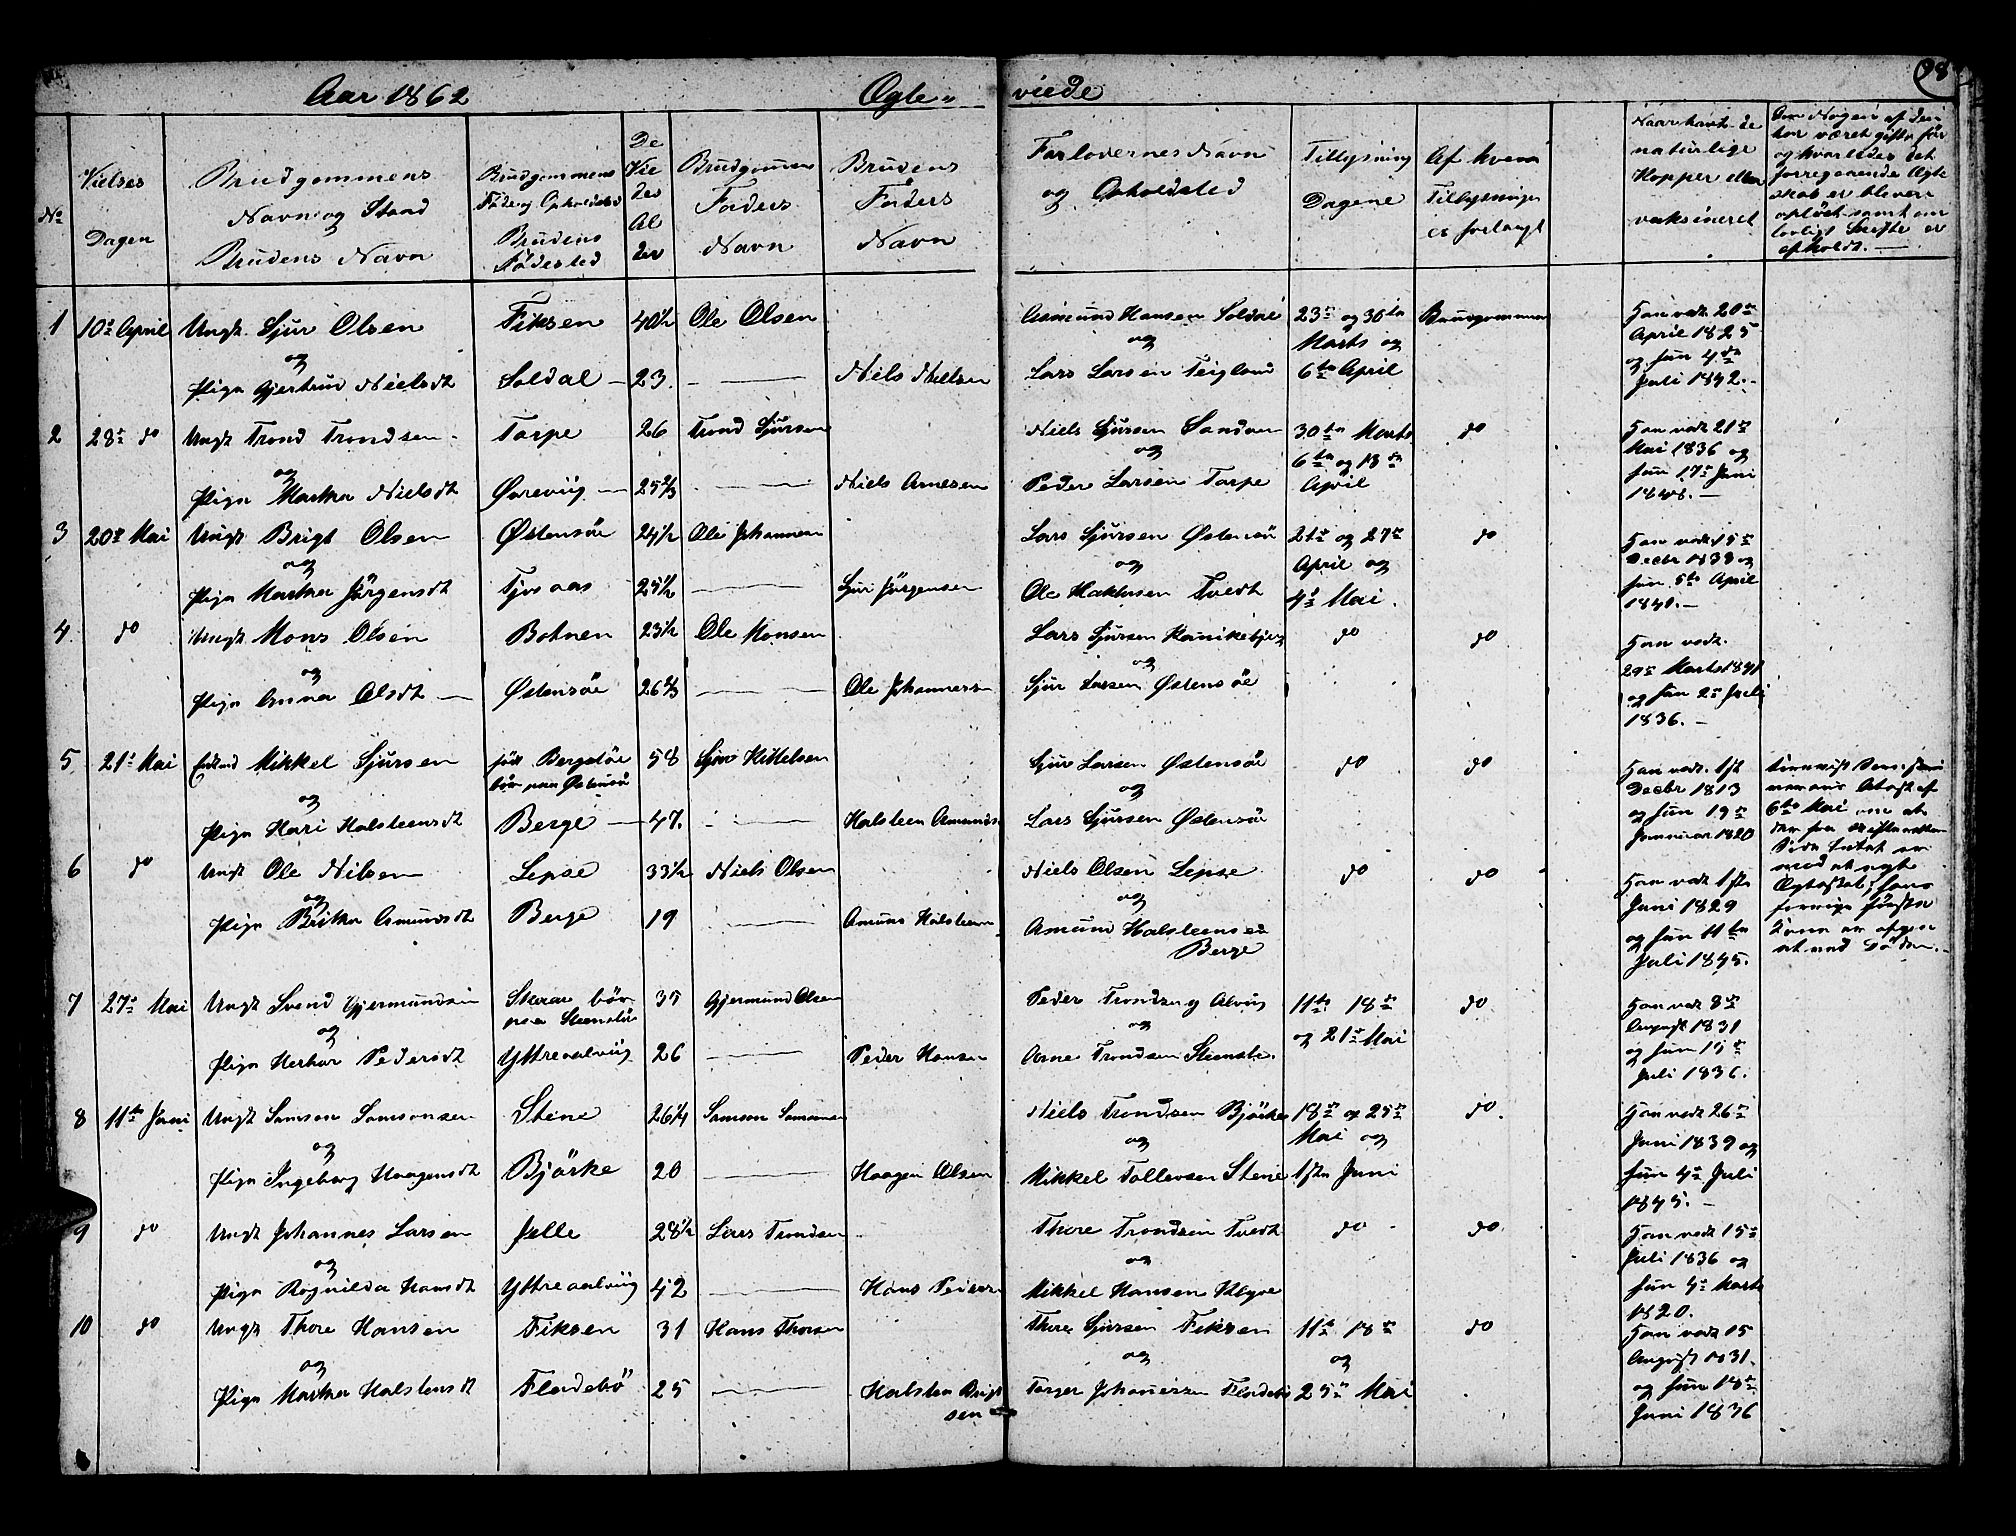 98
Aar 1862 Ægte- viede
No
Vielses Dagen
Brudgommens Navn og Stand Brudens Navn
Brudgommens Føde og Opholdsted Brudens Fødested
De Vie des Al der
Brudgommens Faders Navn
Brudens Faders Navn
Forlovernes Navn og Opholdsted
Tillysnings Dagene
Af hvem Tillysningen er forlangt
Naar havt de naturlige Kopper eller vaksineret
Om Nogen af dem har været gifte før og hvorledes det forregaaende Ægte skab er bleven opløst samt om lovligt Skifte er afholdt.
1 10de April Ungk. Sjur Olsen Fiksen 40½ Ole Olsen Aamund Hansen Soldal 23de og 30te Brudgommen Han vak. 20de
og og Marts og April 1825
Pige Gjertrud Nielsdt Soldal 23. Niels Nielsen Lars Larsen Teigland 6te April og hun 4de
Juli 1842.
2 28de do Ungk Trond Trondsen Torpe 26 Trond Sjursen Niels Sjursen Sandven 30te Marts do Han vak 21de
og og 6te og 13de Mai 1836 og
Pige Martha Nielsdt Øreviig 25⅔ Niels Arnesen Peder Larsen Torpe April hun 17de Juni
3 20de Mai Ungk Brigt Olsen Østensøe 24½ Ole Johannesen Lars Sjursen Østensøe 21de og 27de do Han vak 15de
og og April og Decbr 1838 og
Pige Martha Jørgensdt Tjosaas 25½ Sjur Jørgensen Ole Tvedt 4de Mai. hun 5te April
1840.
4. do Ungk Mons Olsen Botnen 23½ Ole Monsen Lars Sjursen do do Han vak.
og og 29de Marts 1841
Pige Anna Olsdt Østensøe 26⅔ Ole Johannessen Sjur Larsen Østensøe og hun 2de Juli
1836.
5 21de Mai Enkmd Mikkel Sjursen født Bergstøe 58 Sjur Kittelsen Sjur Larsen Østensøe do do Han vak. 1ste
boer paa Østensøe Decbr 1813
og og og hun 19de
Pige Kari Halsteensdt Berge 47. Halsteen Amunds. Lars Sjursen Østensøe Januar 1820
6 do Ungk Ole Nilsen Lepse 33½ Niels Olsen Niels Olsen Lepse do do Han vak 1ste
og og Juni 1829
Pige Britha Amundsdt Berge 19 Amund Halsteens. Amund Halsteensen og hun 11te
Berge Juli 1845.
7 27de Mai Ungk Svend Gjermundsen Skaar boer 35 Gjermund Olsen Peder Trondsen Alviig 11te 18de do. Han vak 8de
og paa Steenstø og og 21de Mai August 1831
Pige Herbor Pedersdt Ytreaalviig 26 Peder Hansen Arne Trondsen Steenstø. og hun 15de
Juli 1836.
8 11te Juni Ungk Samson Samsonsen Stene 26¼ Samson Samsonsen Niels Trondsen Bjørke 18de og 25de do. Han vak 26de
og og Mai og Juni 1839 og
Pige Ingeborg Haagensdt Bjørke 20 Haagen Olsen Mikkel Tollevsen Stene 1ste Juni hun 4de Juli
1845.
9 do Ungk Johannes Larsen Jelle 28½ Lars Trondsen Thore Trondsen Tvedt do do Han vak 15de
og og Juli 1836 og
Pige Ragnilda Hansdt Ytreaalviig 42 Hans Peders. Mikkel Hansen Klyve hun 4de Marts
1820.
10 do Ungk Thore Hansen Fiksen 31 Hans Thorsen Thore Sjursen Fiksen 11te 18de do Han vak 15
og og og August 1831.
Pige Martha Halstensdt Flodebø 25 Halsten Brigt Torger Johannessen Flodebø 25de Mai og hun 18de
sen Juni 1836